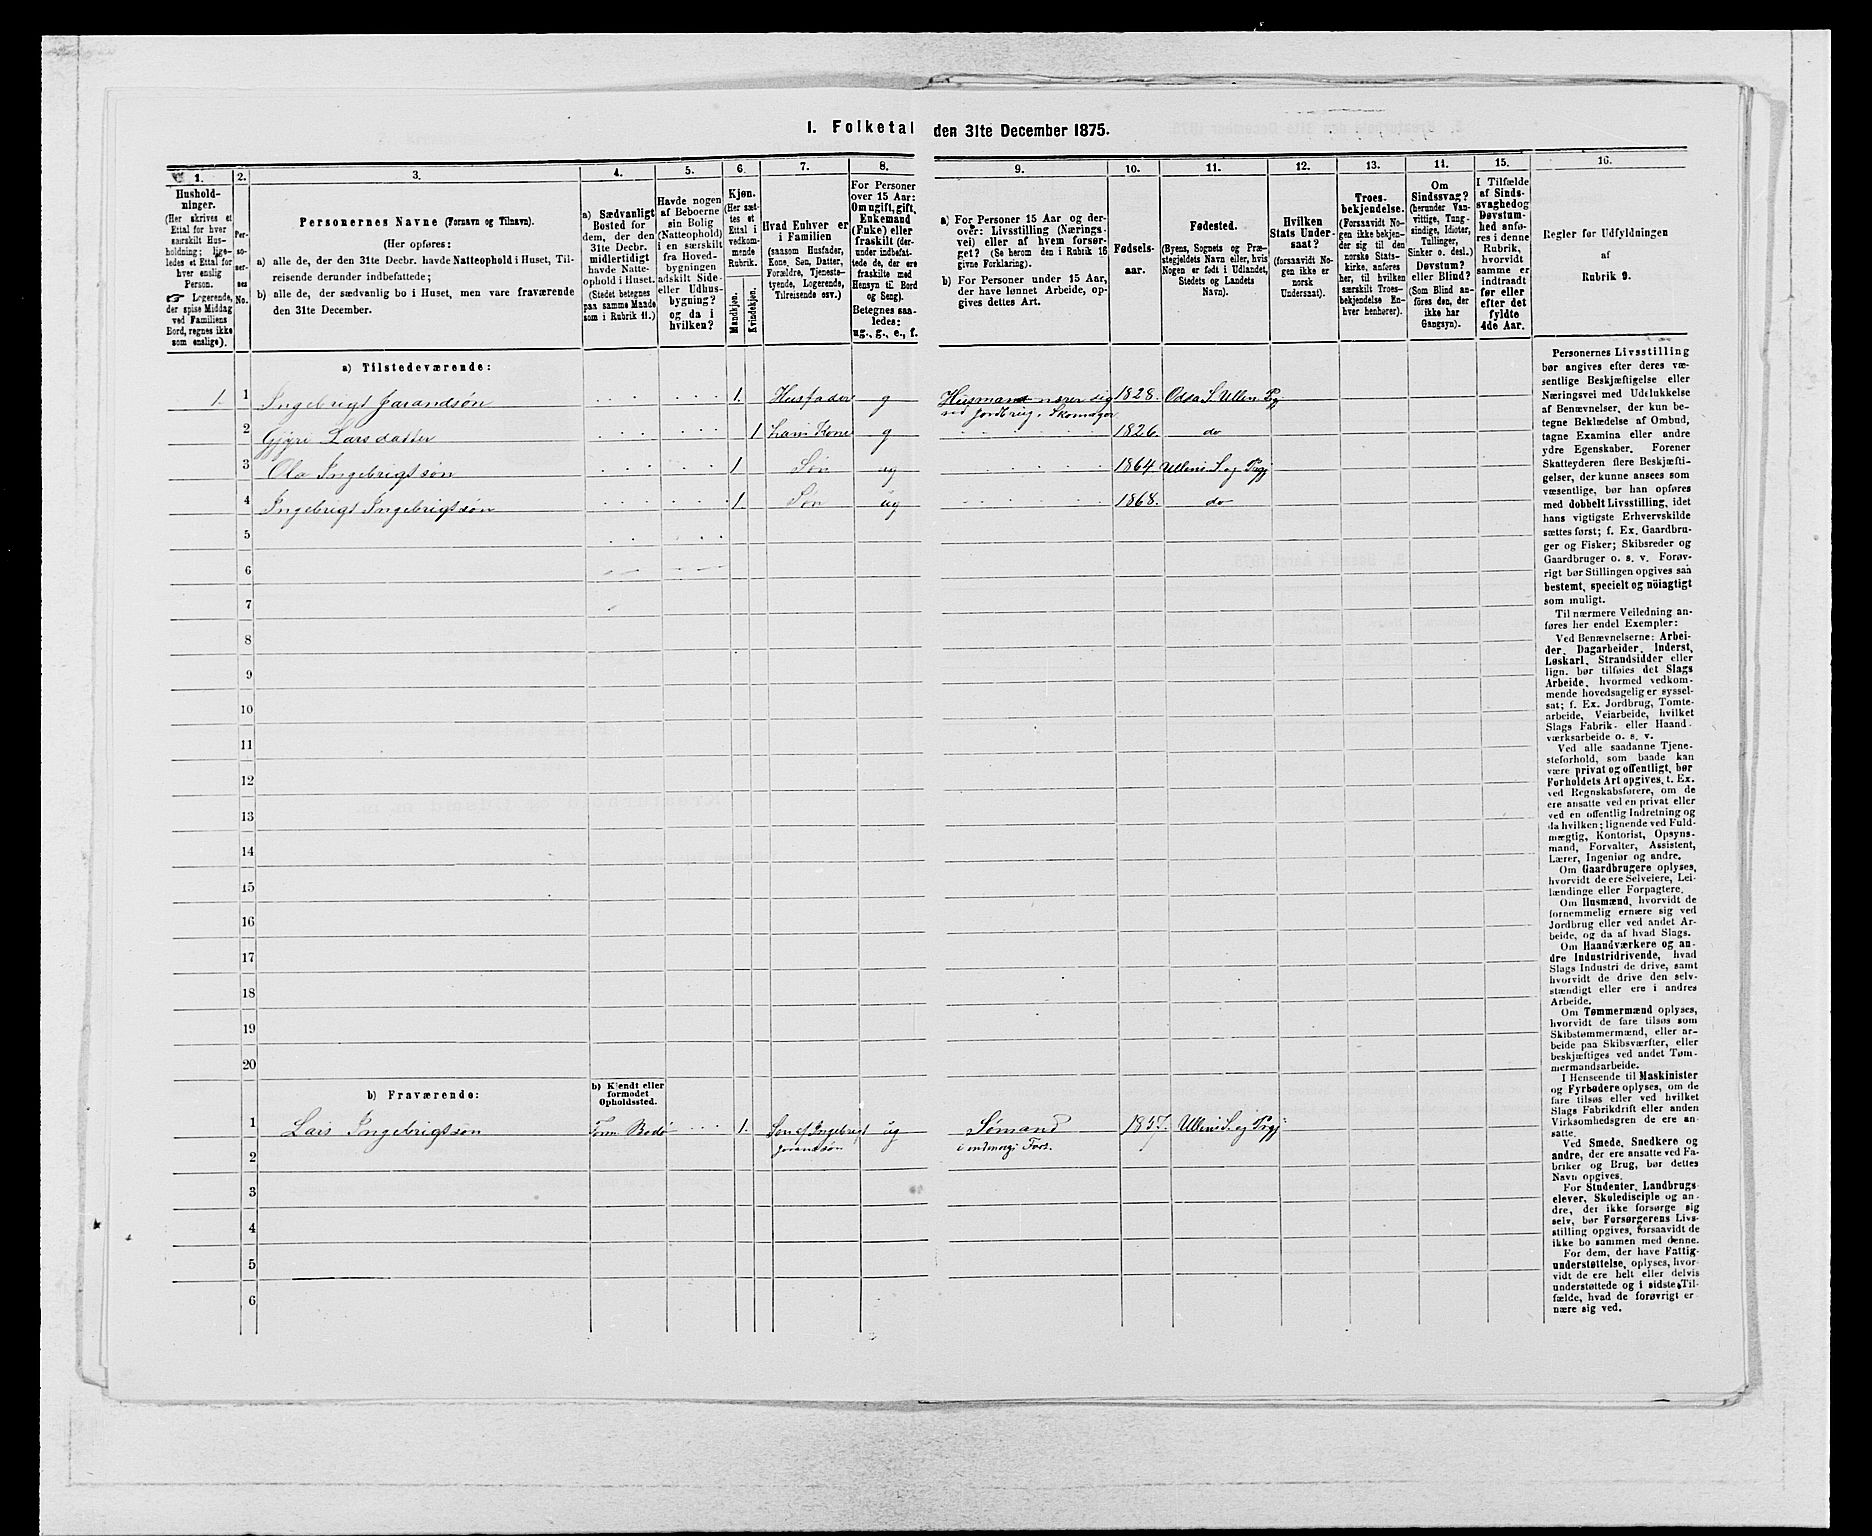 I. Folketal den 31te December 1875.
1. 2. 3. 4. 5. 6. 7. 8. 9. 10. 11. 12. 13. 14. 15. 16.
Hushold-
ninger.
(Her skrives et
Ettal for hver
særskilt Hus-
holdning; lige-
ledes et Ettal for
hver enslig
Person.
☞ Logerende,
der spise Middag
ved Familiens
Bord, regnes ikke
som enslige).
Per-
so-
ner-
nes
No.
Personernes Navne (Fornavn og Tilnavn).
(Her opføres:
a) alle de, der den 31te Decbr. havde Natteophold i Huset, Til-
reisende derunder indbefattede;
b) alle de, der sædvanlig bo i Huset, men vare fraværende
den 31te December.
a) Sædvanligt
Bosted for
dem, der den
31te Decbr.
midlertidigt
havde Natte-
ophold i Huset.
(Stedet betegnes
paa samme Maade
som i Rubrik 11.)
Havde nogen
af Beboerne
sin Bolig
(Natteophold)
i en særskilt
fra Hoved-
bygningen
adskilt Side-
eller Udhus-
bygning?
og da i
hvilken?
Kjøn.
(Her sæt-
tes et
Ettal i
vedkom-
mende
Rubrik.
Mandkjøn.
Kvindekjøn.
Hvad Enhver er
i Familien
(saasom Husfader,
Kone, Søn, Datter,
Forældre, Tjeneste-
tyende, Logerende,
Tilreisende osv.)
For Personer
over 15 Aar:
Om ugift, gift,
Enkemand
(Enke) eller
fraskilt (der-
under indbefat-
tede de, der ere
fraskilte med
Hensyn til Bord
og Seng).
Betegnes saa-
ledes:
ug., g., e., f.
a) For Personer 15 Aar og der-
over: Livsstilling (Nærings-
vei) eller af hvem forsør-
get? (Se herom den i Rubrik 16
givne Forklaring).
b) For Personer under 15 Aar,
der have lønnet Arbeide, op-
gives dettes Art.
Fødsels-
aar.
Fødested.
(Byens, Sognets og Præ-
stegjeldets Navn eller, hvis
Nogen er født i Udlandet,
Stedets og Landets
Navn).
Hvilken
Stats Under-
saat?
(forsaavidt No-
gen ikke er
norsk
Undersaat).
Troes-
bekjendelse.
(Forsaavidt No-
gen ikke bekjen-
der sig til den
norske Stats-
kirke, anføres
her, til hvilken
særskilt Troes-
bekjendelse En-
hver henhører).
Om
Sindssvag?
(herunder Van-
vittige, Tung-
sindige, Idioter,
Tullinger,
Sinker o. desl.)
Døvstum?
eller Blind?
(Som Blind an-
føres den, der
ikke har
Gangsyn).
I Tilfælde
af Sinds-
svaghed og
Døvstum-
hed anfø-
res i denne
Rubrik,
hvorvidt
samme er
indtraadt
før eller
efter det
fyldte
4de Aar.
Regler før Udfyldningen
af
Rubrik 9.
a) Tilstedeværende:
1. 1 Ingebrigt Jarandsön 1. Husfader g Husmand nærer sig ved Jordbrug, Skomager 1828. Odda S. Ullen Prgj
2 Gjyri Larsdatter 1 hans Kone g 1826. do
3 Ola Ingebrigtsön 1 Sön ug 1864 Ullens S. og Prgj
4 Ingebrigt Ingebrigtsön 1. Sön ug 1868. do
5
6
7
8
9
10
11
12
13
14
15
16
17
18
19
20
b) Fraværende:
b) Kjendt eller
formodet
Opholdssted.
1 Lars Ingebrigtsön Bodö 1. Sön af Ingebrigt Jorandsön ug Sömand 1857. Ullens S. og Prgj
2
3
4
5
6
Personernes Livsstilling
bør angives efter deres væ-
sentlige Beskjæftigelse eller
Næringsvei med Udelukkelse
af Benævnelser, der kun be-
tegne Beklædelse af Ombud,
tagne Examina eller andre
ydre Egenskaber. Forener
Skatteyderen flere Beskjæfti-
gelser, der kunne ansees som
væsentlige, bør han opføres
med dobbelt Livsstilling, idet
hans vigtigste Erhvervskilde
sættes først; f. Ex. Gaardbru-
ger og Fisker; Skibsreder og
Gaardbruger o. s. v. Forøv-
rigt bør Stillingen opgives saa
bestemt, specielt og nöiagtigt
som muligt.
Til nærmere Veiledning an-
føres her endel Exempler:
Ved Benævnelserne: Arbei-
der, Dagarbeider, Inderst,
Løskarl, Strandsidder eller
lign. bør tilføies det Slags
Arbeide, hvormed vedkom-
mende hovedsagelig er syssel-
sat; f. Ex. Jordbrug, Tomte-
arbeide, Veiarbeide, hvilket
Slags Fabrik- eller Haand-
værksarbeide o. s. v.
Ved alle saadanne Tjene-
steforhold, som baade kan
være privat og offentligt, bør
Forholdets Art opgives, t. Ex.
ved Regnskabsførere, om de
ere ansatte ved en privat eller
ved en offentlig Indretning og
da hvilken; lignende ved Fuld-
mægtig, Kontorist, Opsyns-
mand, Forvalter, Assistent,
Lærer, Ingeniør og andre.
Om Gaardbrugere oplyses,
hvorvidt de ere Selveiere, Lei-
lændinge eller Forpagtere.
Om Husmænd, hvorvidt de
fornemmelig ernære sig ved
Jordbrug eller ved andet Ar-
beide, og da af hvad Slags.
Om Haandværkere og an-
dre Industridrivende, hvad
Slags Industri de drive, samt
hvorvidt de drive den selv-
stændigt eller ere i andres
Arbeide.
Om Tømmermænd oplyses,
hvorvidt de fare tilsøs som
Skibstømmermænd, eller ar-
beide paa Skibsværfter, eller
beskjæftiges ved andet Tøm-
mermandsarbeide.
I Henseende til Maskinister
og Fyrbødere oplyses, om de
fare tilsøs eller ved hvilket
Slags Fabrikdrift eller anden
Virksomhedsgren de ere an-
satte.
Ved Smede, Snedkere og
andre, der ere ansatte ved Fa-
briker og Brug, bør dettes
Navn opgives.
For Studenter, Landbrugs-
elever, Skoledisciple og an-
dre, der ikke forsørge sig
selv, bør Forsørgerens Livs-
stilling opgives, forsaavidt de
ikke bo sammen med denne.
For dem, der have Fattig-
understøttelse, oplyses, hvor-
vidt de ere helt eller delvis
understøttede og i sidste Til-
fælde, hvad de forøvrigt er-
nære sig ved.